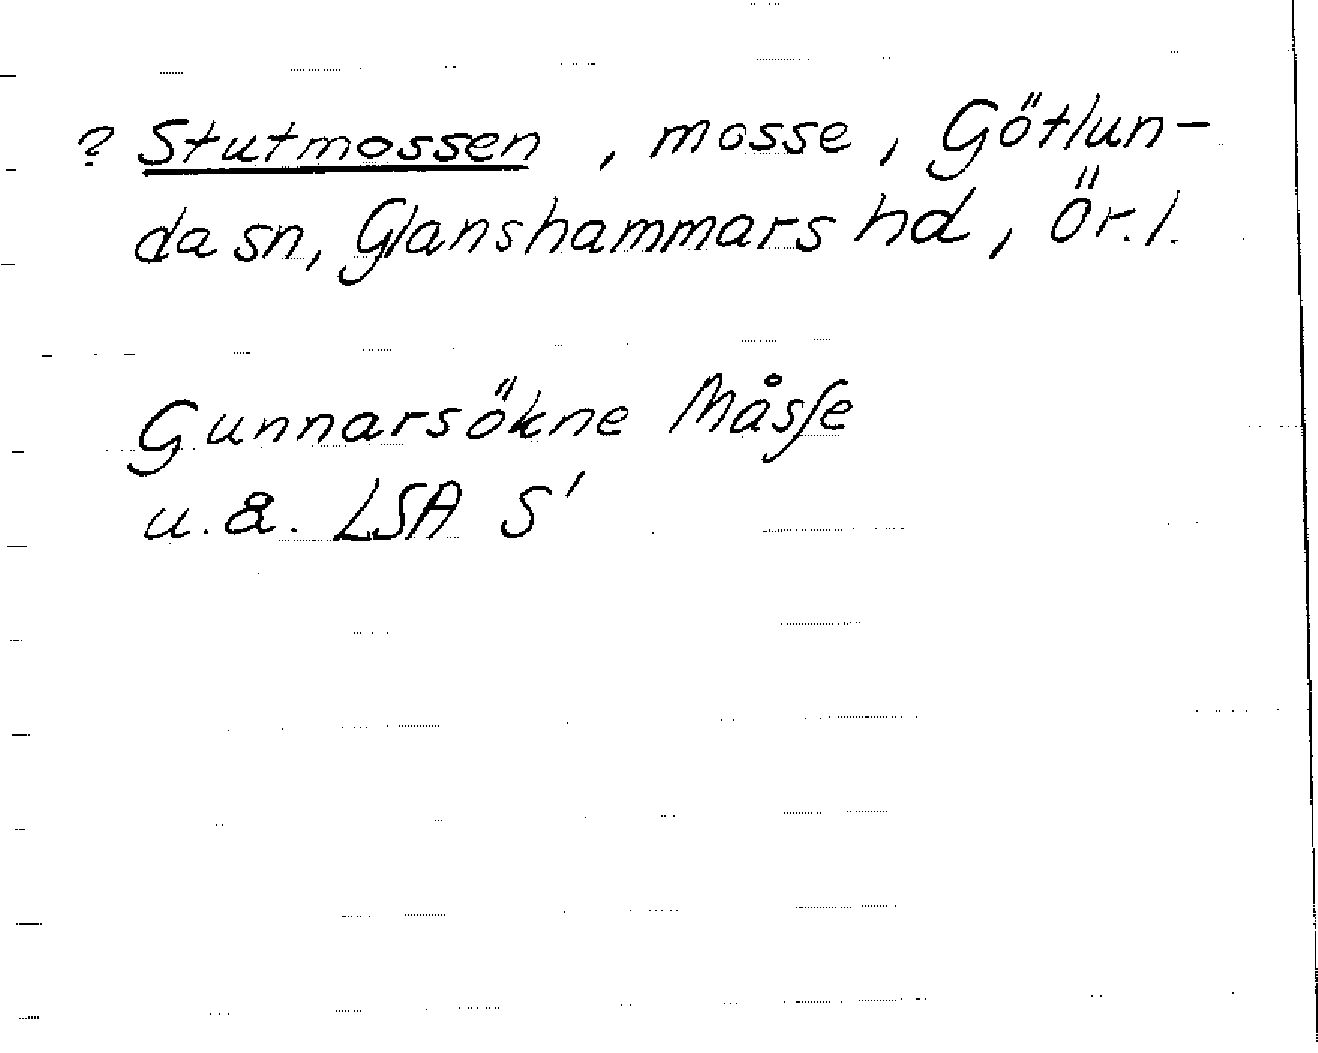 ? Stutmossen, mosse, Götlun-
da sn, Glanshammars hd, Ör.l.
Gunnarsökne Måsse
u.å. LSA S'